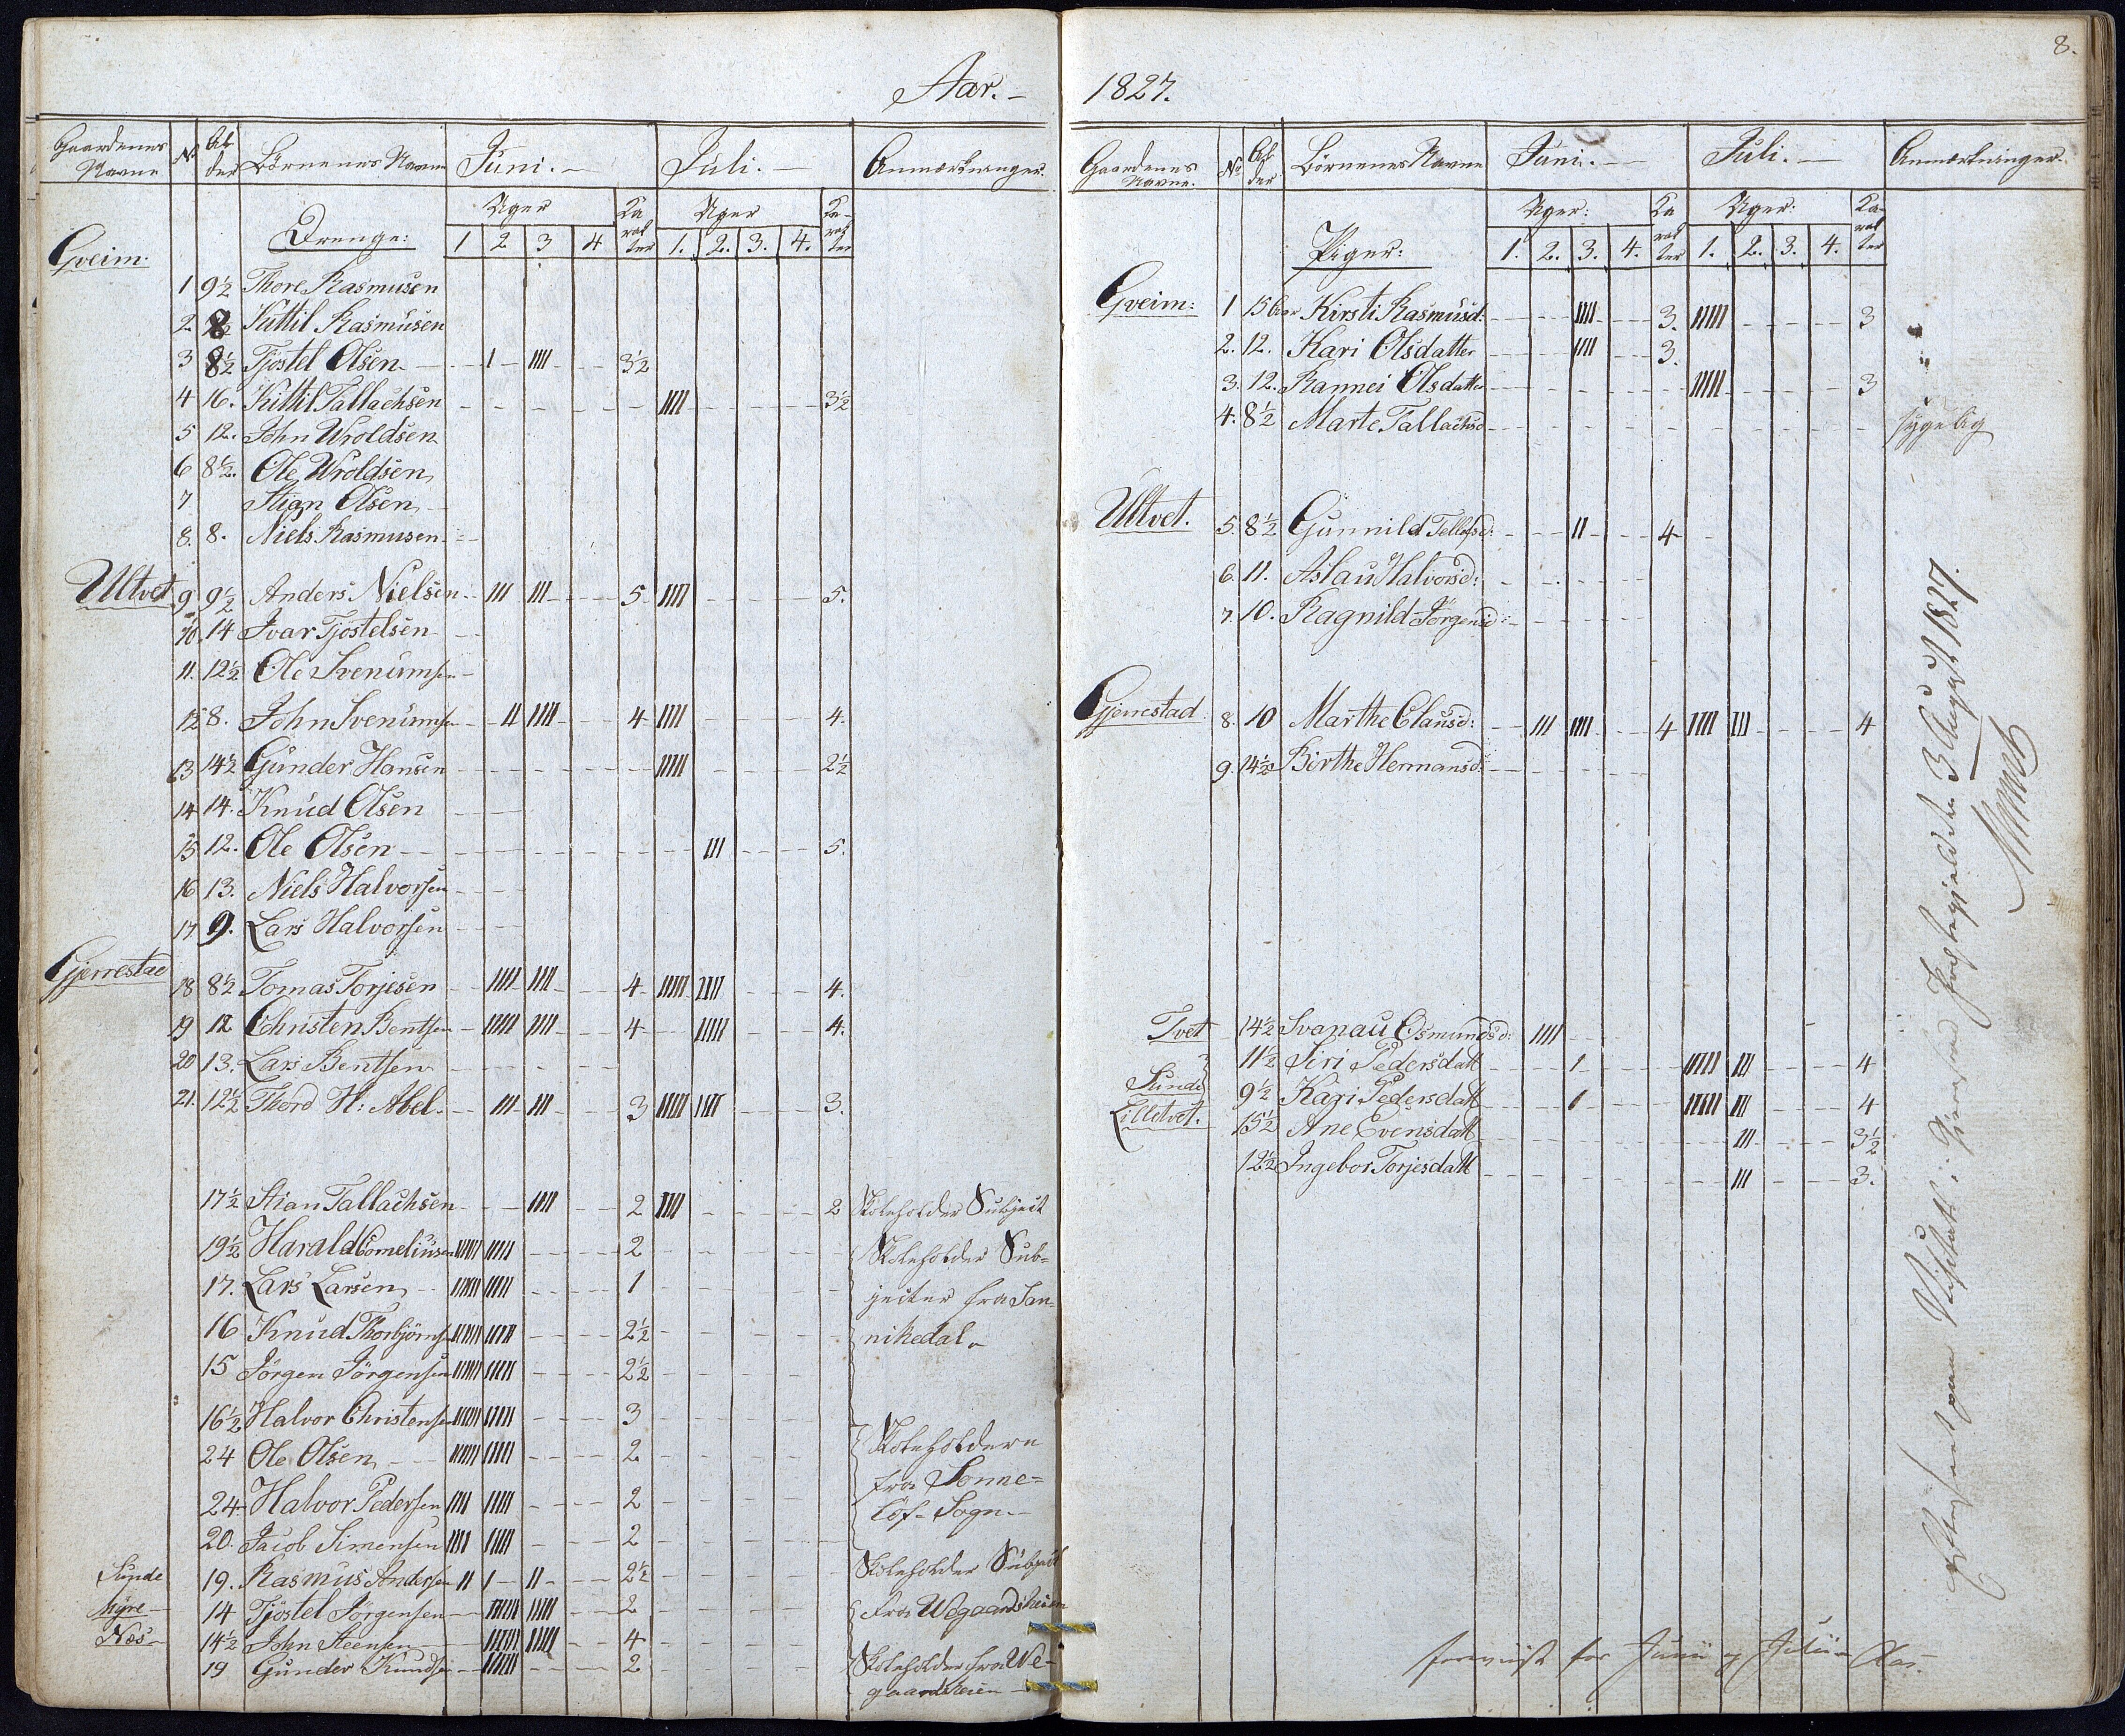 8.
Aar. – 1827.
Gaardenes Navne | No | Alder | Börnenes Navne | Juni. – | Juli. – | Anmærkninger.
Uger | Karakter | Uger | Karakter
Drenge: | 1 | 2 | 3 | 4 | 1. | 2. | 3. | 4.
Gveim.
1 | 9½ | Thore Rasmusen
2. | 8 | Kittil Rasmusen
3 | 8½ | Tjöstel Olsen | I | IIII | 3½
4 | 16. | Kittil Tallachsen | IIII | 3½
5 | 12. | John Wroldsen
6 | 8½. | Ole Wroldsen
7 | Stian Olsen
8. | 8. | Niels Rasmusen
Ultvet
9 | 9½ | Anders Nielsen | III | III | 5 | IIII | 5.
10. | 14 | Ivar Tjöstelsen
11. | 12½ | Ole Svenumsen
12 | 8. | John Svenumsen | II | IIII | 4 | IIII | 4.
13 | 14½ | Gunder Hansen | IIIII | 2½
14 | 14. | Knud Olsen
15 | 12. | Ole Olsen | III | 5.
16 | 13. | Niels Halvorsen
17. | 9. | Lars Halvorsen
Gjerrestad
18 | 8½ | Tomas Torjesen | IIII | IIII | 4 | IIIII | IIII | 4.
19 | 12 | Christen Bentsen | IIIII | IIII | 4 | IIIII | 4.
20 | 13. | Lars Bentsen
21. | 12½ | Thord H: Abel. | III | III | 3 | IIIII | IIII | 3.
17½ | Stian Tallachsen | IIII | 2 | IIII | 2 | Skoleholder Subject
19½ | Harald Corneliusen | IIIII | IIIII | 2 | Skoleholder Sub=
17. | Lars Larsen | IIIII | IIIII | 1 | jecter fra San=
16 | Knud Thorbjörnsen | IIIII | IIIII | 2½ | nikedal.
15 | Jörgen Jörgensen | IIIII | IIIII | 2½
16½ | Halvor Christensen | IIIII | IIIII | 3 | Skoleholdere
24 | Ole Olsen | IIIII | IIIII | 2 | fra Sonne=
24 | Halvor Pedersen | IIII | IIIII | 2 | löf- Sogn.
20. | Jacob Simensen | IIII | IIIII | 2
Sunde | 19. | Rasmus Andersen | II | I | II | 2½ | Skoleholder Subject
Myre | 14 | Tjöstel Jörgensen | IIIII | IIIII | 2 | fra Wegaardsheien
Næs | 14½ | John Steensen | IIIII | IIIII | 4
19 | Gunder Knudsen | IIIII | 2 | Skoleholder fra We-
gaardsheien
Gaardenes Navne. | No | Alder | Börnenes Navne | Juni. – | Juli. – | Anmærkninger.
Uger: | Karakter | Uger: | Karakter
Piger: | 1. | 2. | 3. | 4. | 1. | 2. | 3. | 4.
Gveim:
1 | 15 Aar | Kirsti Rasmusd: | IIII | 3. | IIIII | 3
2. | 12. | Kari Olsdatter | IIII | 3.
3. | 12. | Rannei Olsdatter | IIIII | 3
4. | 8½ | Marte Tallachsd | sygelig
Ultvet.
5. | 8½ | Gunnild Tellefsd: | II | 4
6. | 11. | Aslau Halvorsd:
7. | 10. | Ragnild Jörgensd:
Gjerrestad
8. | 10 | Marthe Clausd: | III | IIII | 4 | IIII | III | 4
9. | 14½ | Birthe Hermansd:
Tvet | 14½ | Svanau Osmundsd: | IIII
11½ | Siri Pedersdatt | I | IIIII | III | 4
Sunde | 9½ | Kari Pedersdatt | I | IIIII | III | 4
Lilletvet. | 15½ | Ane Evensdatt | III | 3½
12½ | Ingebor Torjesdatt | III | 3.
Visitats i Gjerrestad Præstegjeld den 3 August 1827.
foreviist for Junii og Julii